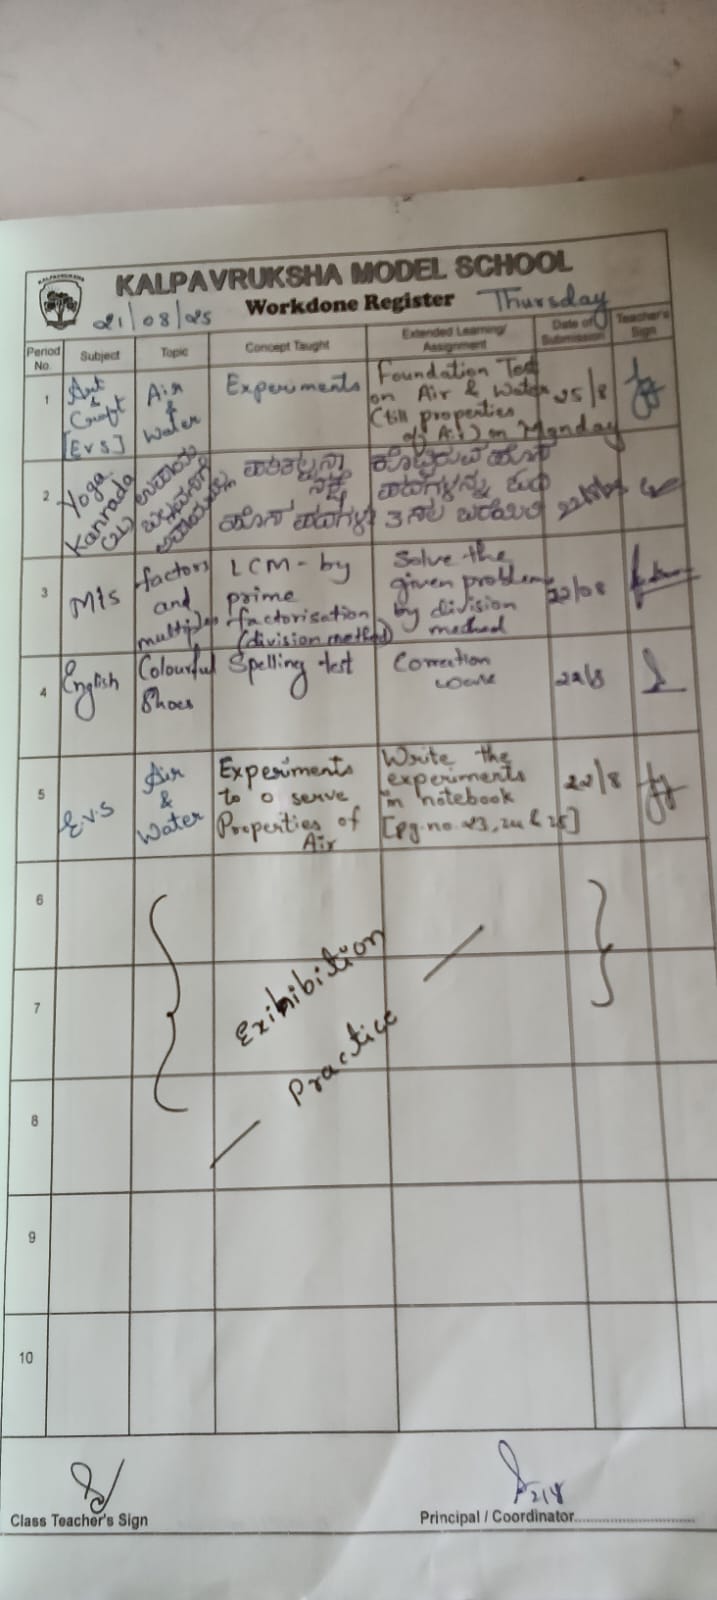 KALPAVRUKSHA MODEL SCHOOL
21/08/25 Workdone Register Thursday
Period No. Subject Topic Concept Taught Extended Learning/ Assignment Date of Submission Teacher's Sign
1 Art & Craft [EVS] Air & Water Experiments Foundation Test on Air & Water (till properties of Air) on Monday 25/8
2 Yoga Kannada (2L) ಹೊಸ ಪದಗಳು ಕೊಟ್ಟಿರುವ ಹೊಸ ಪದಗಳನ್ನು 3 ಸಲ ಬರೆಯಿರಿ
3 M1s factors and multiples LCM - by prime factorisation (division method) Solve the given problems by division method 22/08
4 English Colourful Shoes Spelling test Correction 22/8
5 E.V.S Air & Water Experiments to o serve Properties of Air Write the experiments in notebook [pg.no. 23, 24 & 25] 22/8
6
7
8
Exihibition
Practice
9
10
Class Teacher's Sign
Principal / Coordinator